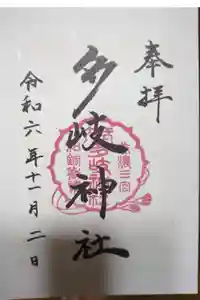 奉拝
多岐神社
令和六年十一月二日